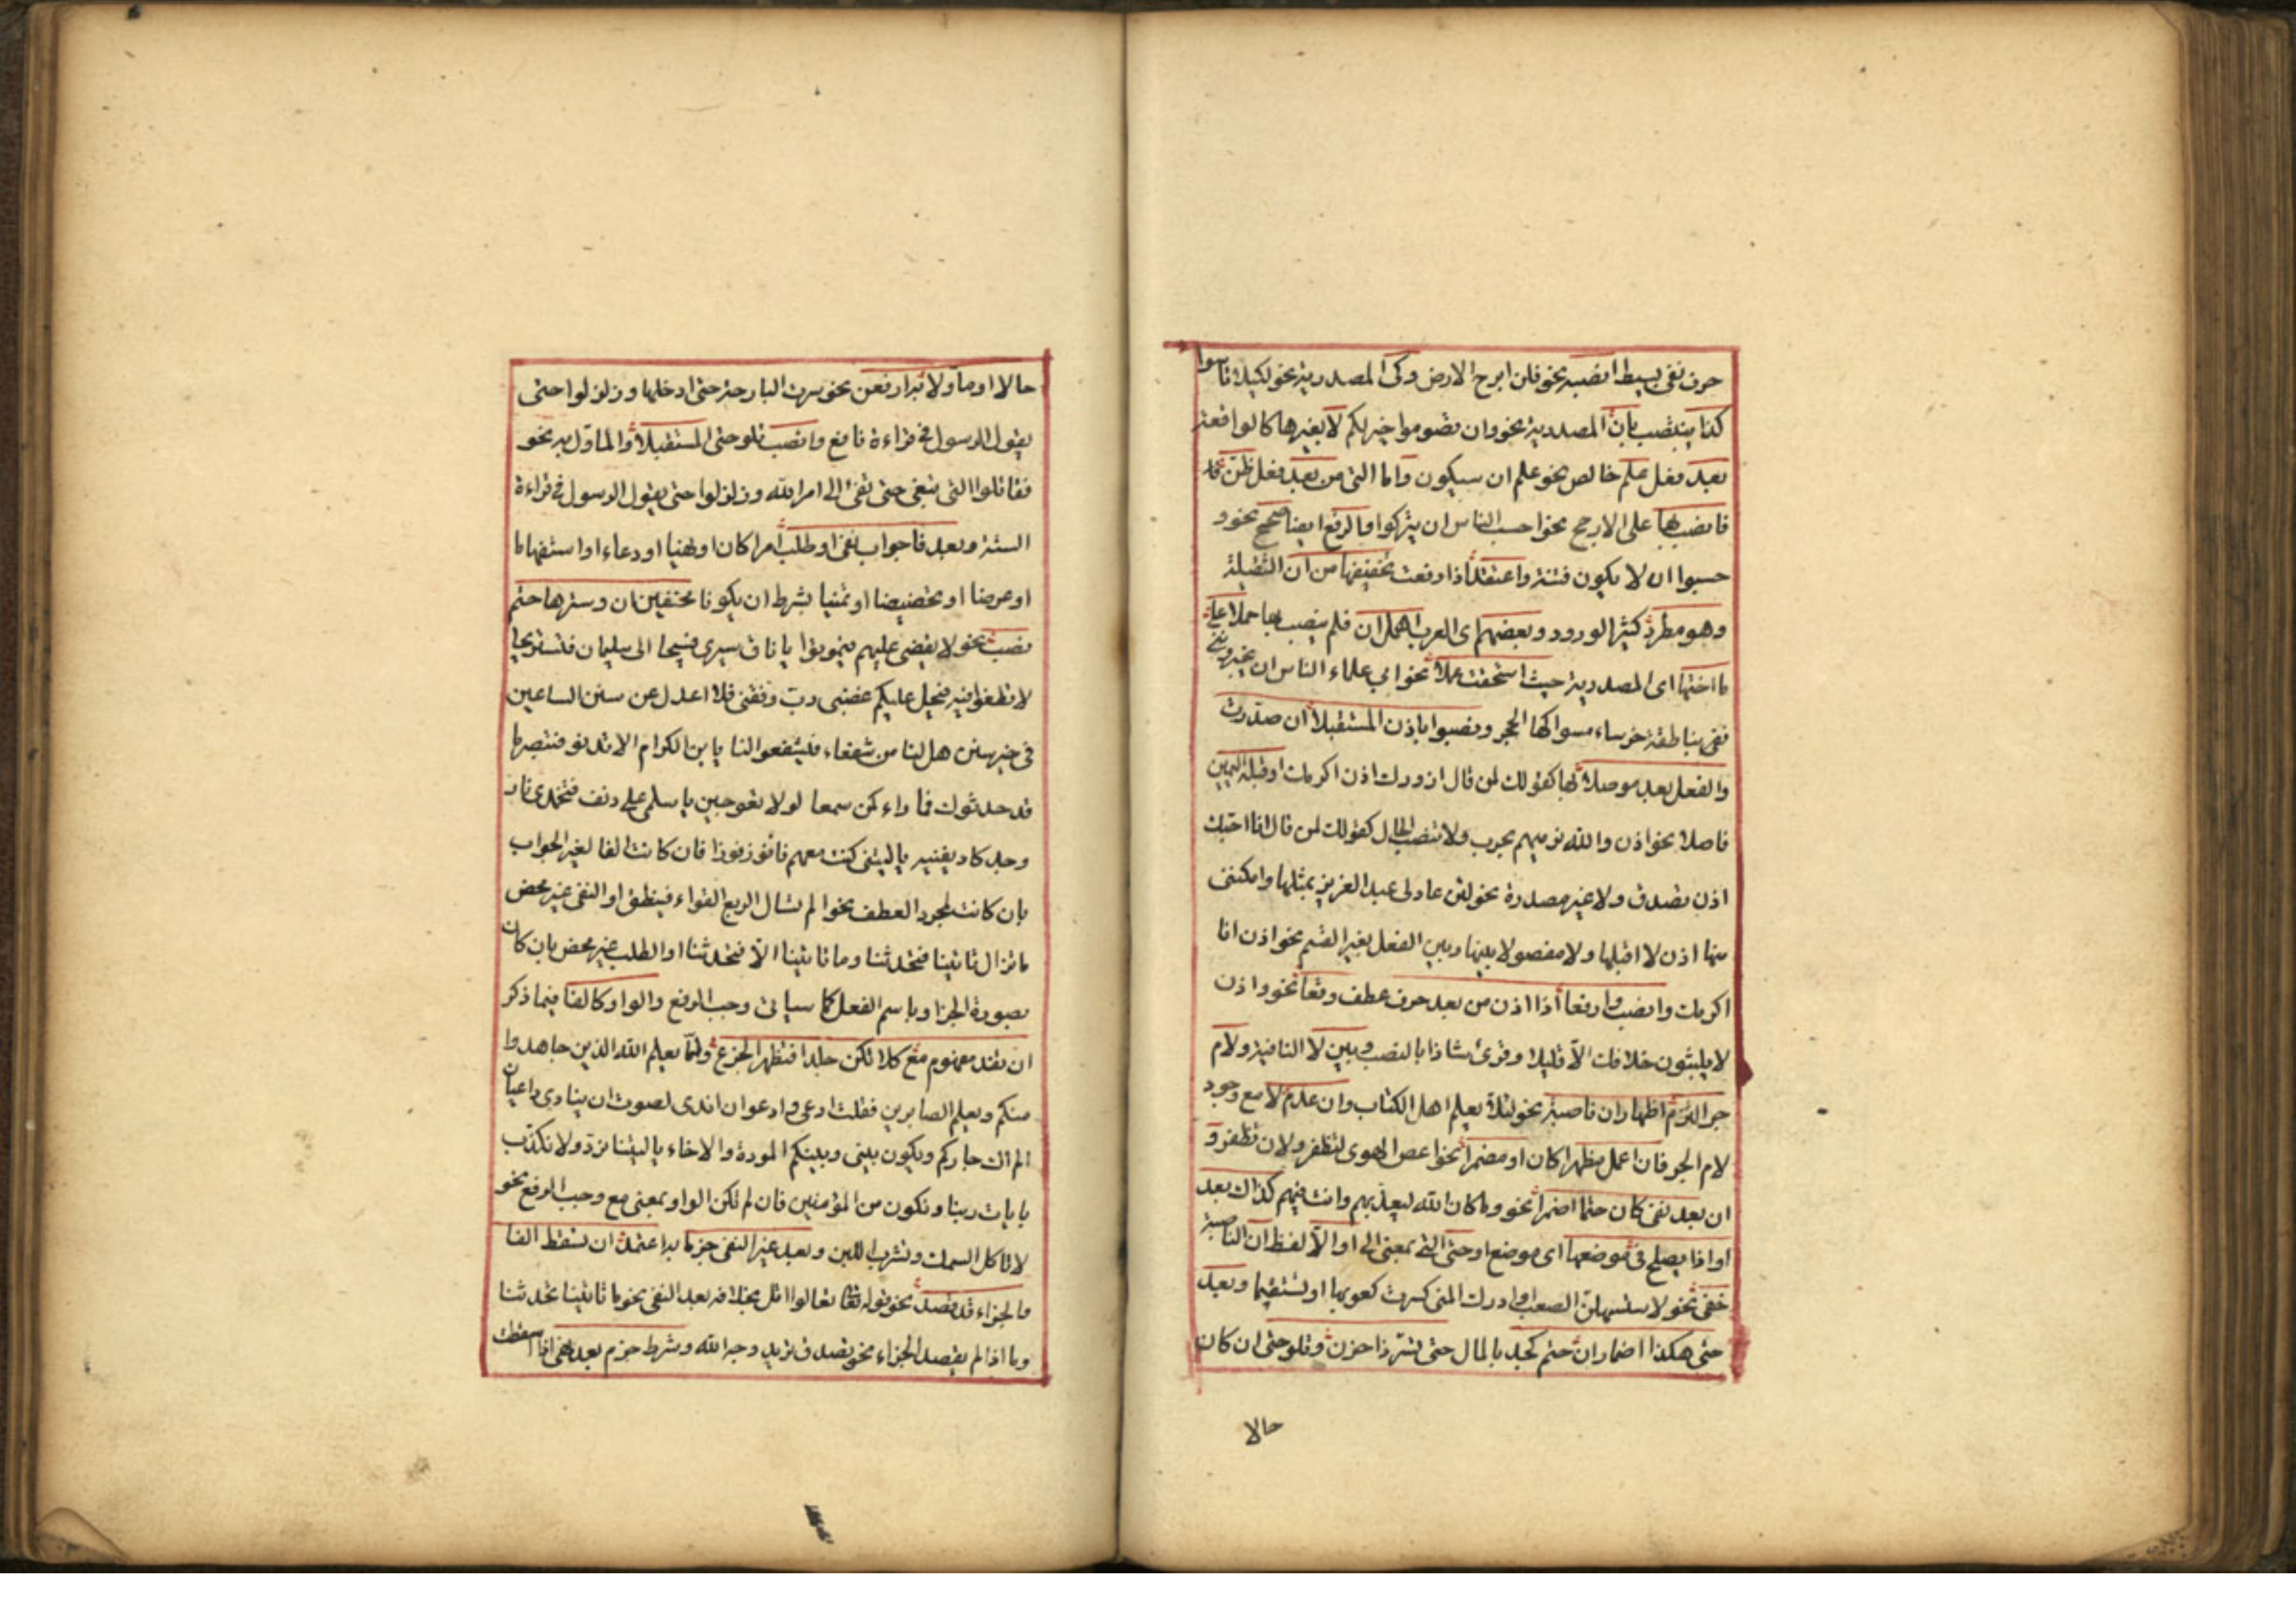 حرف نفى بسيط انصبه نحو فلن ابرح الارض وكى المصدرية نحو لكيلا تاسوا
كذا ينتصب بان المصدرية نحو وان تصوموا خير لكم لا بغيرها كالواقعة
بعد فعل علم خالص نحو علم ان سيكون واما التى من بعد فعل ظن قد
فانصب بها على الارجح نحو احسب الناس ان يتركوا والرفع ايضا صحح نحو و
حسبوا ان لا يكون فتنة واعتقد اذا رفعت تخفيفها من ان الثقيلة
وهو مطرد كثير الورود وبعضهم اى العرب اهمل ان فلم ينصب بها حملا على
ما اختها اى المصدرية حيث استحقت عملا نحو ابى علماء الناس ان
ففى بناطقة خرساء مسواكها الحجر ونصبوا باذن المستقبلا ان صدرت
والفعل بعد موصلا بها كقولك لمن قال ازورك اذن اكرمك او قبله اليمين
فاصلا نحو اذن والله نرميهم بحرب ولا تنصب الحال كقولك لمن قال انا احبك
اذن تصدق ولا غير مصدرة نحو لئن عاد لى عبد العزيز بمثلها وامكننى
منها اذن لا اقيلها ولا مفصولا بينها وبين الفعل بغير القسم نحو اذن انا
اكرمك وانصب وارفعا اذا اذن من بعد حرف عطف وقعا نحو واذن
لا يلبثون خلافك الا قليلا وقرئ شاذا بالنصب وبين لا النافية ولام
جر التزم اظهار ان ناصبة نحو لئلا يعلم اهل الكتاب وان عدم لا مع وجود
لام الجر فان اعمل مظهرا كان او مضمرا نحو اعص الهوى لتظفر ولان تظفر و
ان بعد نفى كان حتما اضمرا نحو وما كان الله ليعذبهم وانت فيهم كذاك بعد
او اذا يصلح فى موضعها اى موضع او حتى التى بمعنى الى او الا لفظ ان الناصبة
خفى نحو لاستسهلن الصعب او ادرك المنى كسرت كعوبها او تستقيما وبعد
حتى هكذا اضمار ان حتم كجد بالمال حتى تسر ذا حزن وتلو حتى ان كان
حالا
حالا او مأولا به ارفعن نحو سرت البارحة حتى ادخلها وزلزلوا حتى
يقول الرسول فى قراءة نافع وانصب تلو حتى المستقبلا او المأول به نحو
فقاتلوا التى تبغى حتى تفئ الى امر الله وزلزلوا حتى يقول الرسول فى قراءة
الستة وبعد فا جواب نفى او طلب امرا كان او نهيا او دعاء او استفهاما
او عرضا او تخضيضا او تمنيا بشرط ان يكونا محضين ان وسترها حتم
نصب نحو لا يقضى عليهم فيموتوا يا ناق سيرى فسيحا الى سليمان فنستريحا
لا تطغوا فيه فيحل عليكم غضبى رب وفقنى فلا اعدل عن سنن الساعين
فى خير سنن هل لنا من شفعاء فيشفعوا لنا يا بن الكرام الا تدنو فتبصر ما
قد حدثوك فما راء كمن سمعا لولا تعوجين يا سلمى على دنف فتخمدى نار
وجد كاد يفنيه يا ليتنى كنت معهم فافوز فوزا فان كانت الفا لغير الجواب
بان كانت لمجرد العطف نحو الم تسال الربع القواء فينطق او النفى غير محض
ما تزال تاتينا فتحدثنا وما تاتينا الا فتحدثنا او الطلب غير محض بان كان
بصورة الخبر او باسم الفعل كما سياتى وجب الرفع والواو كالفا فيما ذكر
ان تفد مفهوم مع كلا تكن جلدا فتظهر الجزع ولما يعلم الله الذين جاهدوا
منكم ويعلم الصابرين فقلت ادعى وادعو ان اندى لصوت ان ينادى داعيان
الم اك جاركم ويكون بينى وبينكم المودة والاخاء يا ليتنا نرد ولا نكذب
بايات ربنا ونكون من المؤمنين فان لم تكن الواو بمعنى مع وجب الرفع نحو
لا تاكل السمك وتشرب اللبن وبعد غير النفى جزما به اعتمد ان تسقط الفا
والجزاء قد قصد نحو قوله تعا تعالوا اتل بخلافه بعد النفى نحو ما تاتينا تحدثنا
وما اذا لم يقصد الجزاء نحو تصدق تريد وجه الله وشرط جزم بعد نهى اذا اسقطت